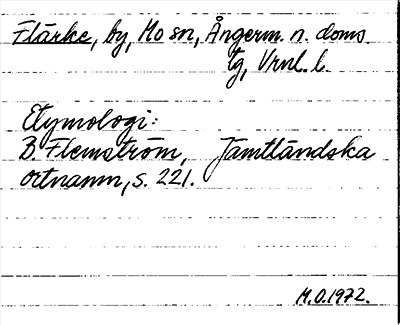 Flärke, by, Mo sn, Ångerm. n. doms.
tg, Vrnl. l.
Etymologi:
B. Flemström, Jämtländska
ortnamn, s. 221.
M.O. 1972.